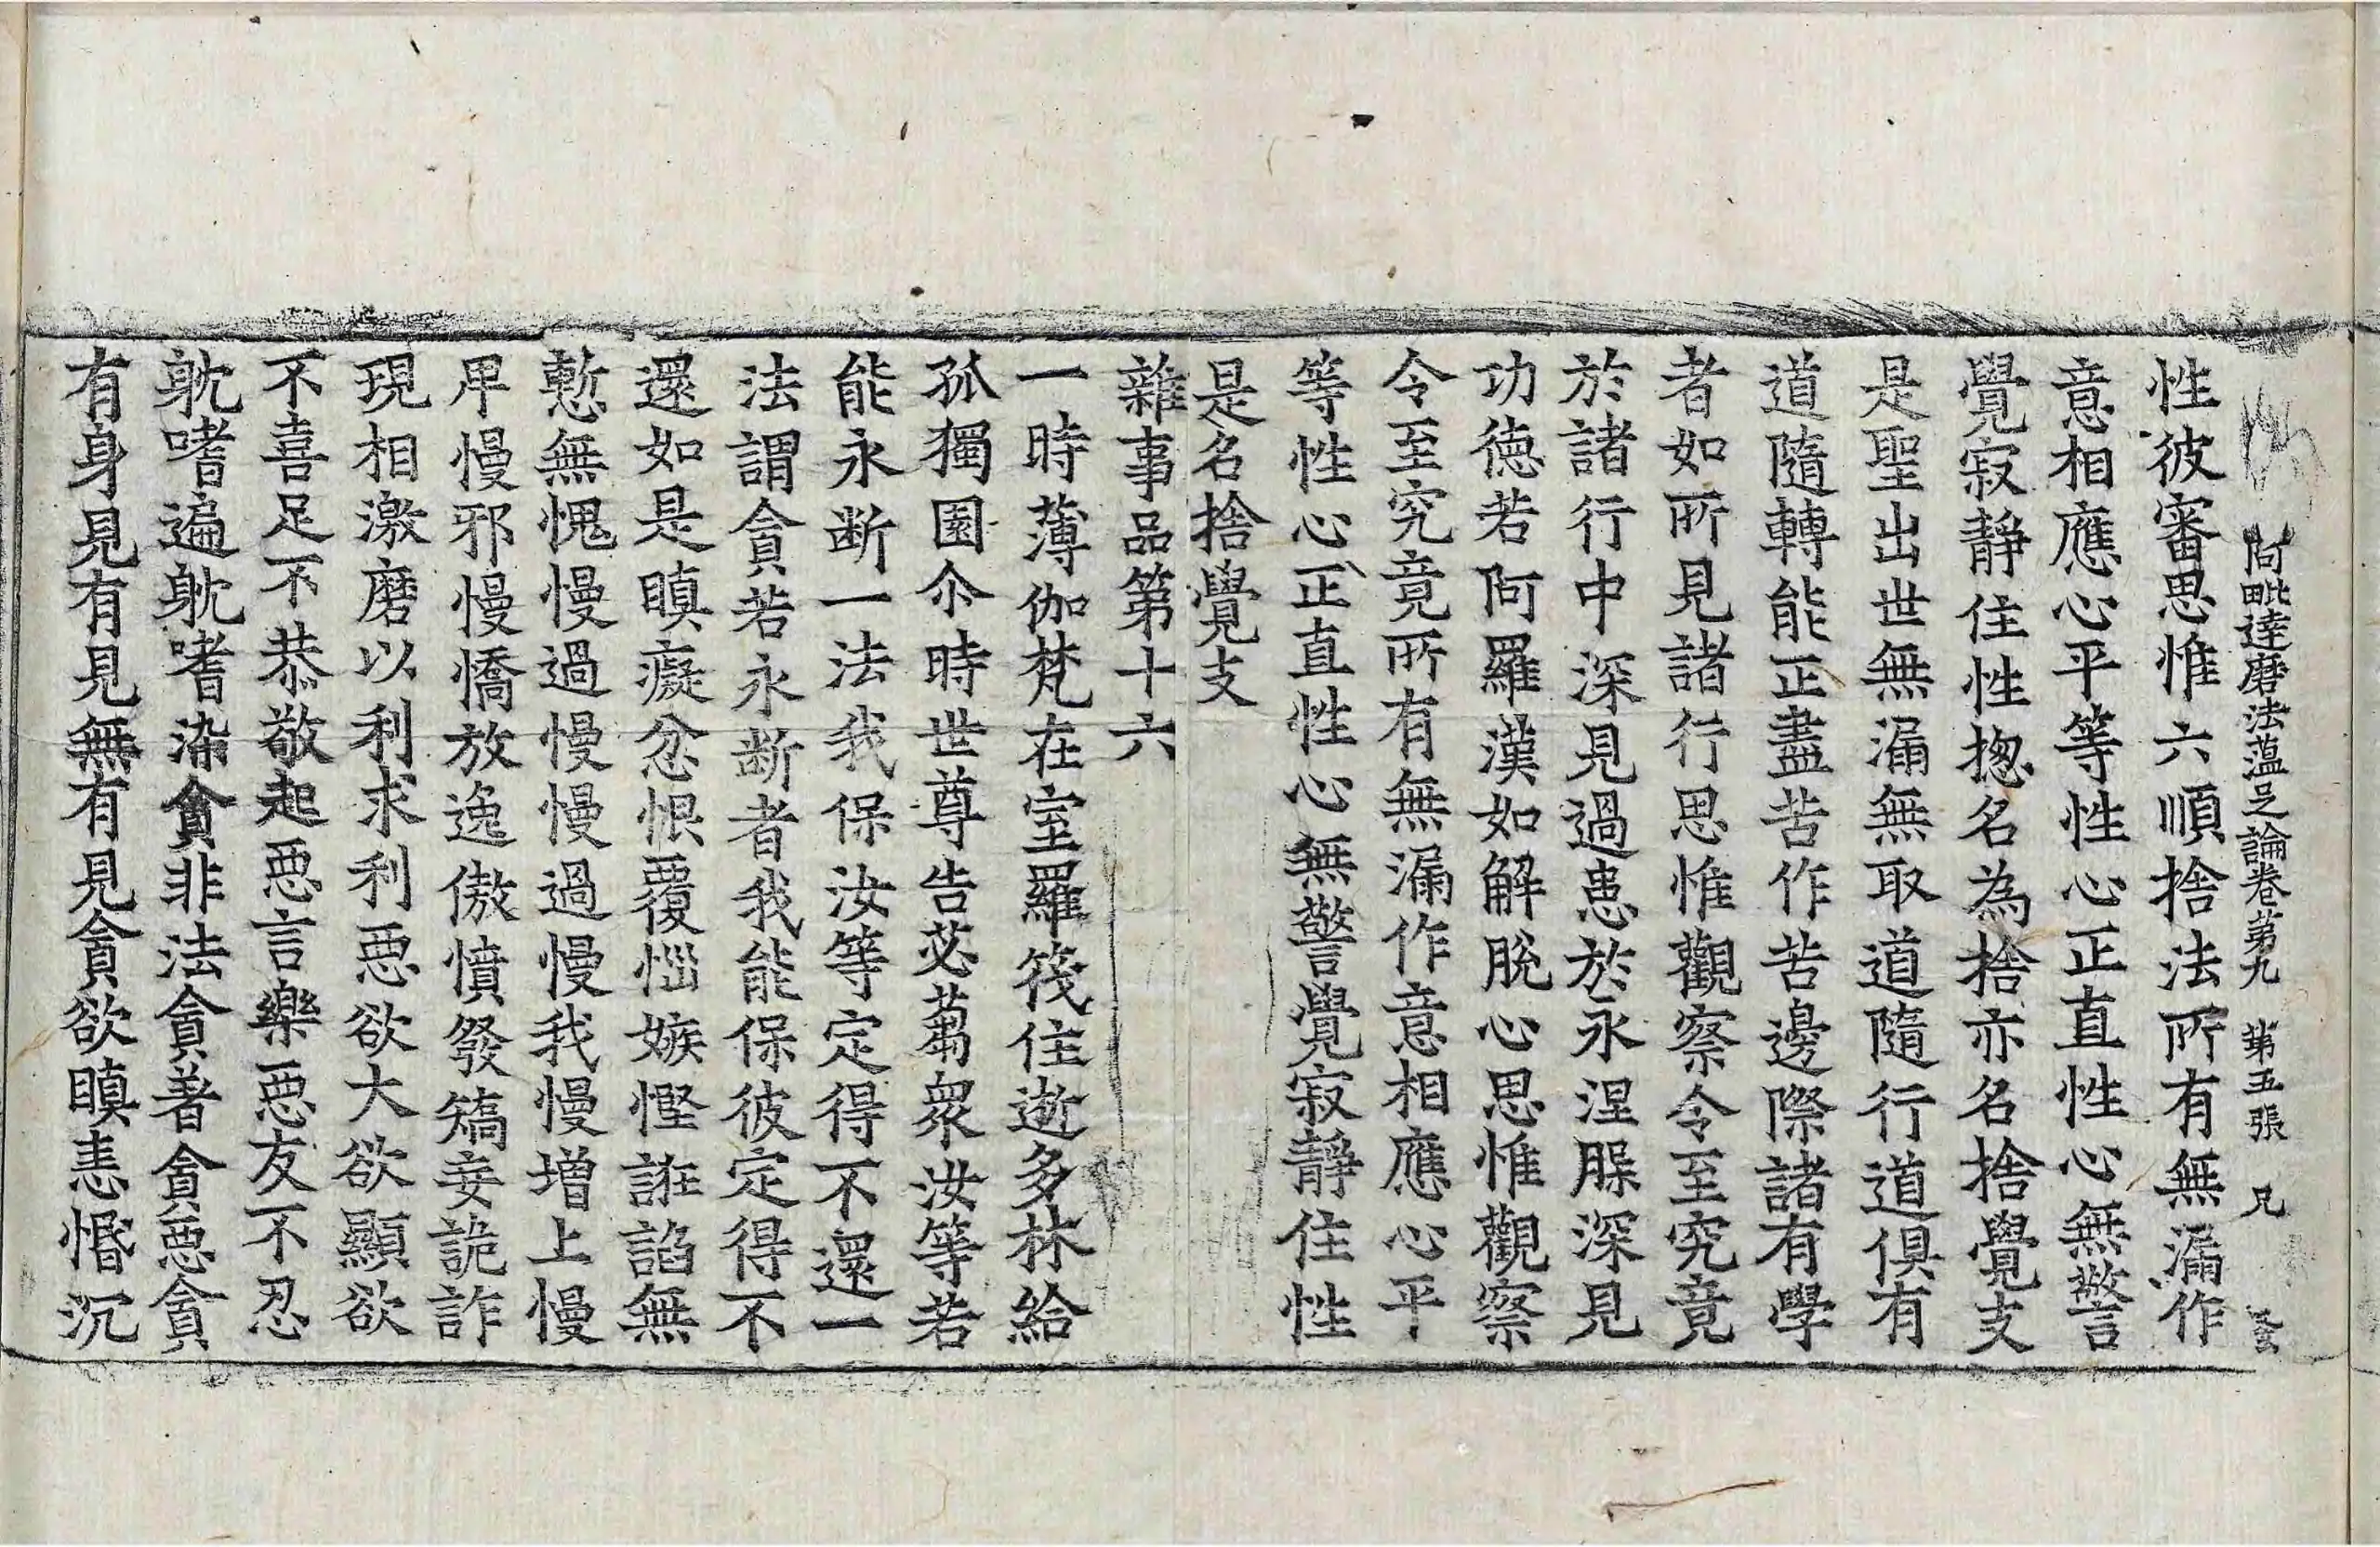 阿毗達磨法蘊足論卷第九　第五張　兄
性彼審思惟六順捨法所有無漏作
意相應心平等性心正直性心無警
覺寂靜住性揔名為捨亦名捨覺支
是聖出世無漏無取道隨行道俱有
道隨轉能正盡苦作苦邊際諸有學
者如所見諸行思惟觀察令至究竟
於諸行中深見過患於永涅槃深見
功德若阿羅漢如解脫心思惟觀察
令至究竟所有無漏作意相應心平
等性心正直性心無警覺寂靜住性
是名捨覺支
雜事品第十六
一時薄伽梵在室羅筏住逝多林給
孤獨園尒時世尊告苾蒭衆汝等若
能永断一法我保汝等定得不還一
法謂貪若永断者我能保彼定得不
還如是瞋癡忿恨覆惱嫉慳誑諂無
慙無愧慢過慢慢過慢我慢增上慢
卑慢邪慢憍放逸傲憤發矯妄詭詐
現相激磨以利求利惡欲大欲顯欲
不喜足不恭敬起惡言樂惡友不忍
躭嗜遍躭嗜染貪非法貪著貪惡貪
有身見有見無有見貪欲瞋恚惛沉